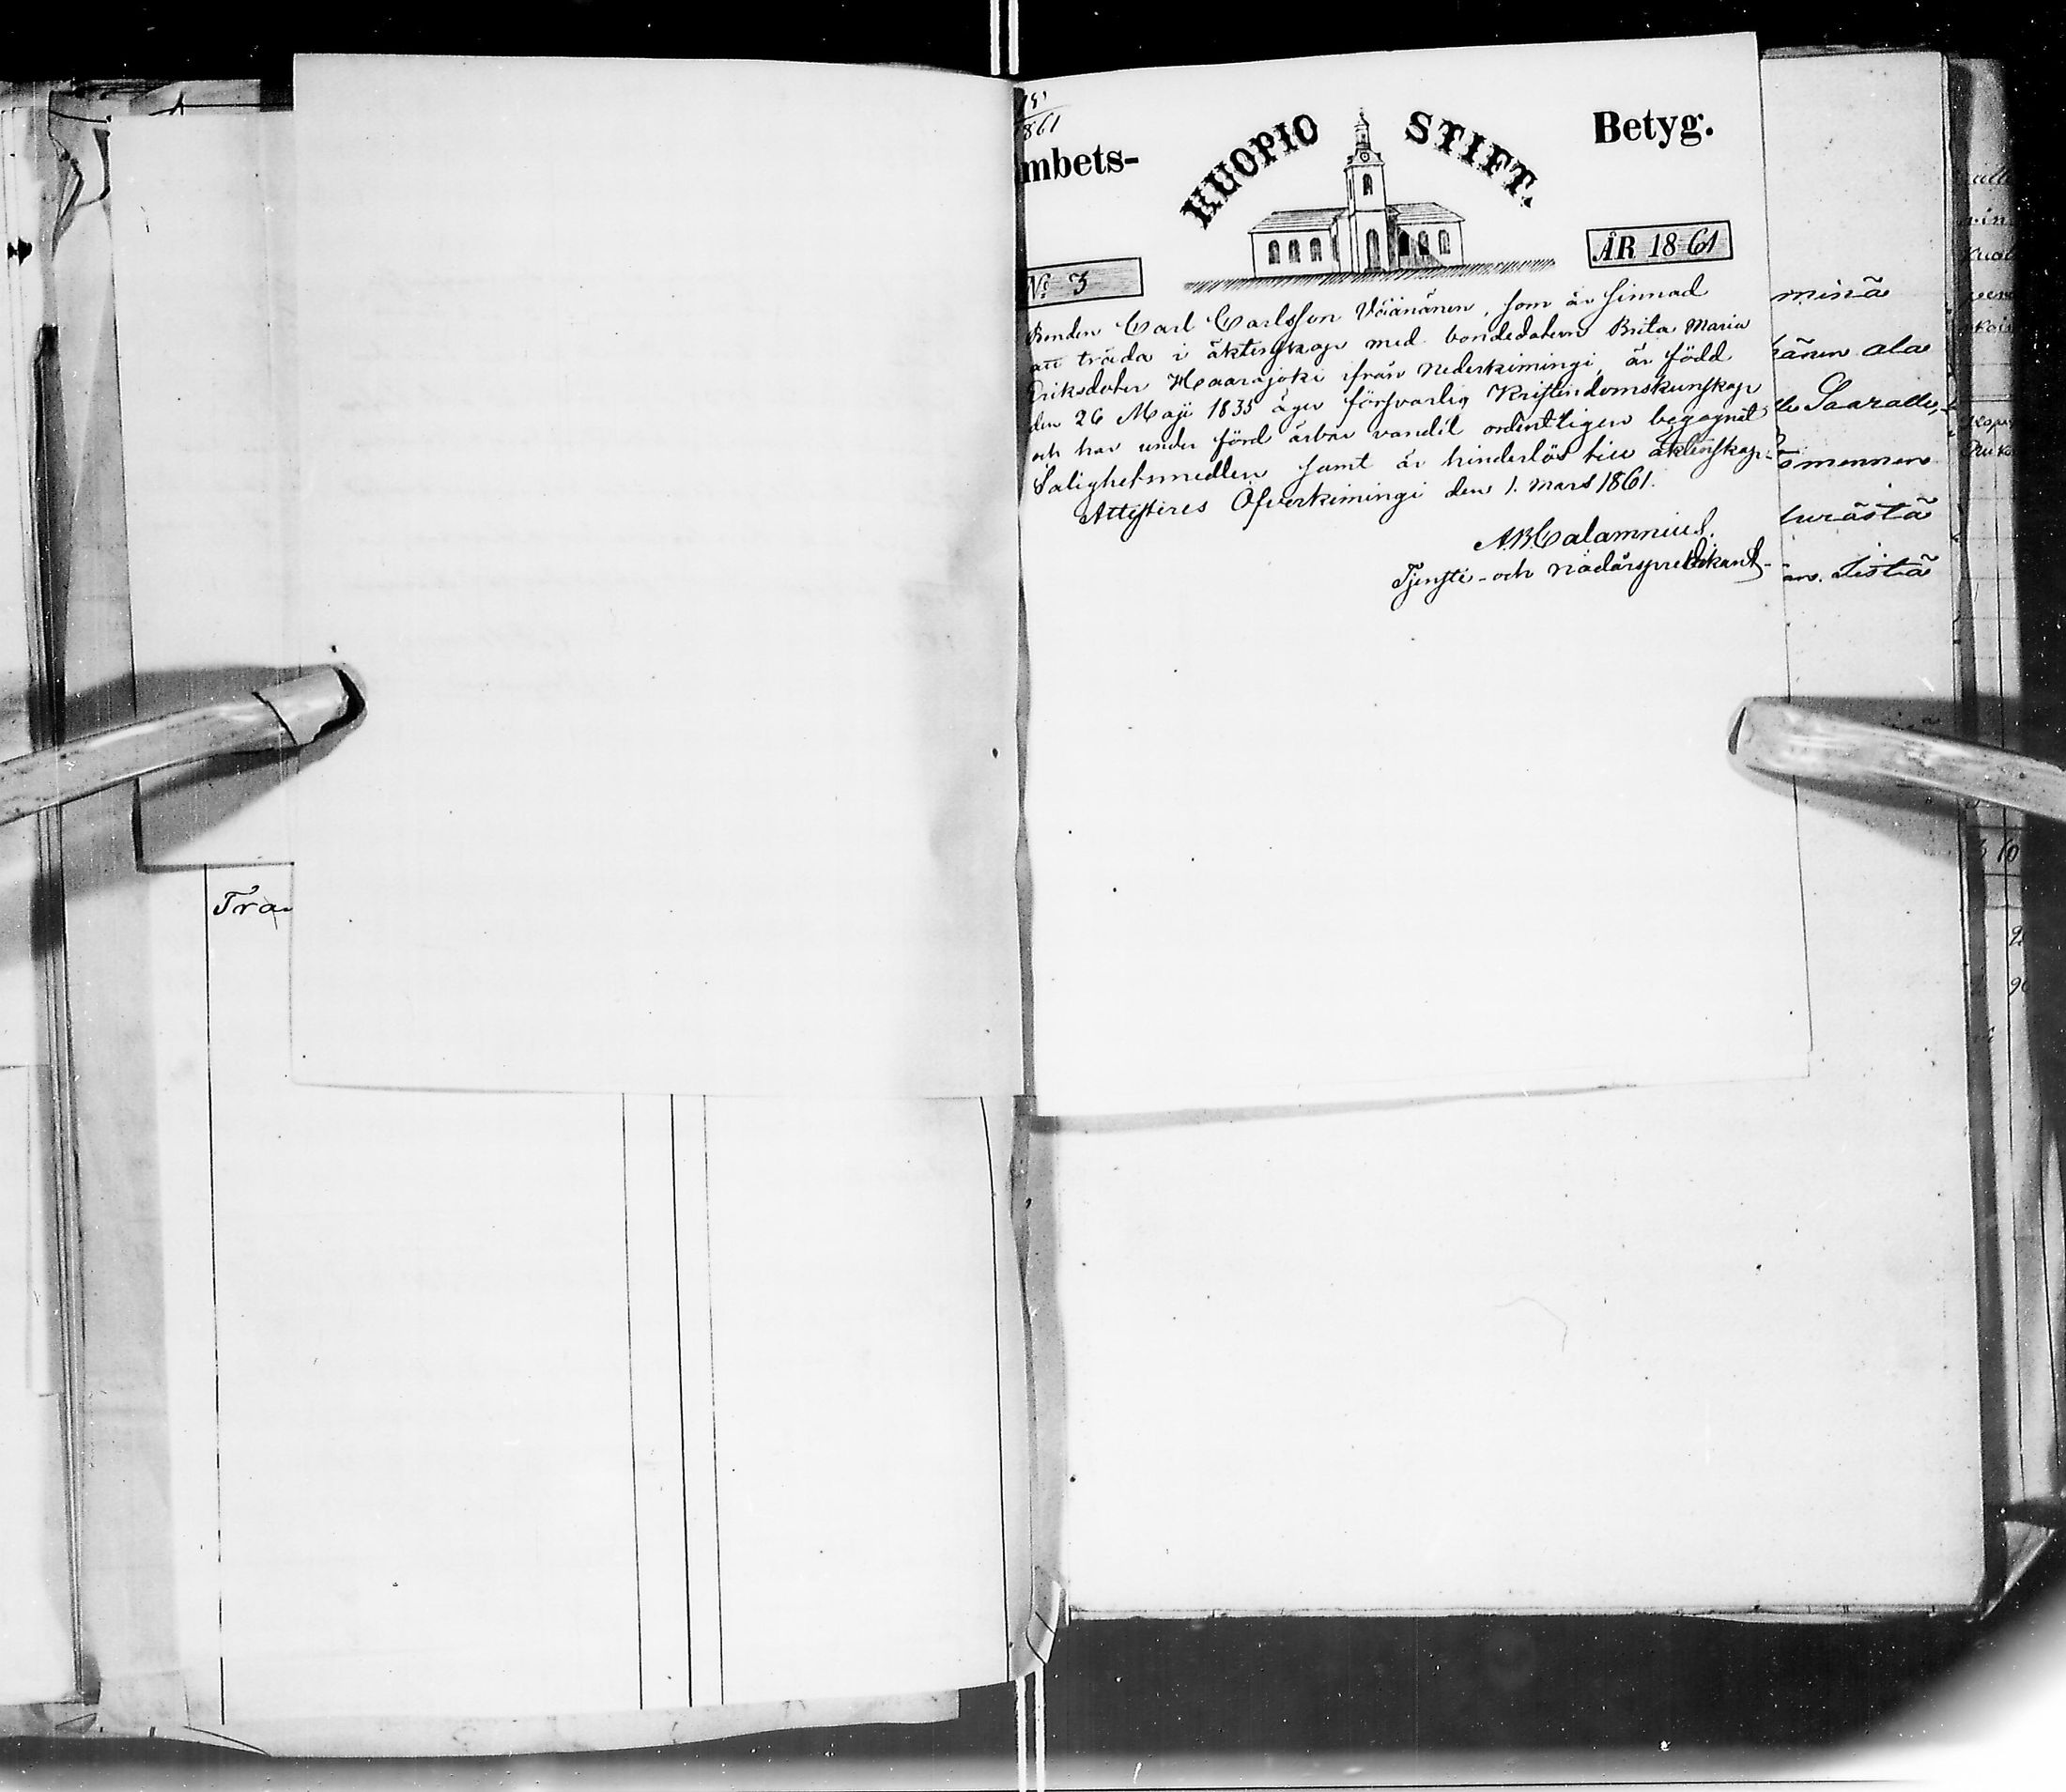 Tra
1861
mbets-
KUOPIO STIFT.
Betyg.
No 3
ÅR 1861
Bonden Carl Carlsson Väänänen, som är sinnad
att träda i äktenskap med bondedotern Brita Maria
Eriksdoter Haarajoki ifrån Nederkimingi, är född
den 26 Maji 1835 äger försvarlig Kristendomskunskap
och har under förd ärbar vandel ordentligen begagnat
Salighetsmedlen samt är hinderlös till äktenskap.
Attesteres Öfverkimingi den 1. Mars 1861.
A.B. Calamnius.
Tjenste- och nådårspredikant.
minä
hänen ala
lle Saaralle,
ömennen
turästä
an. Sistä